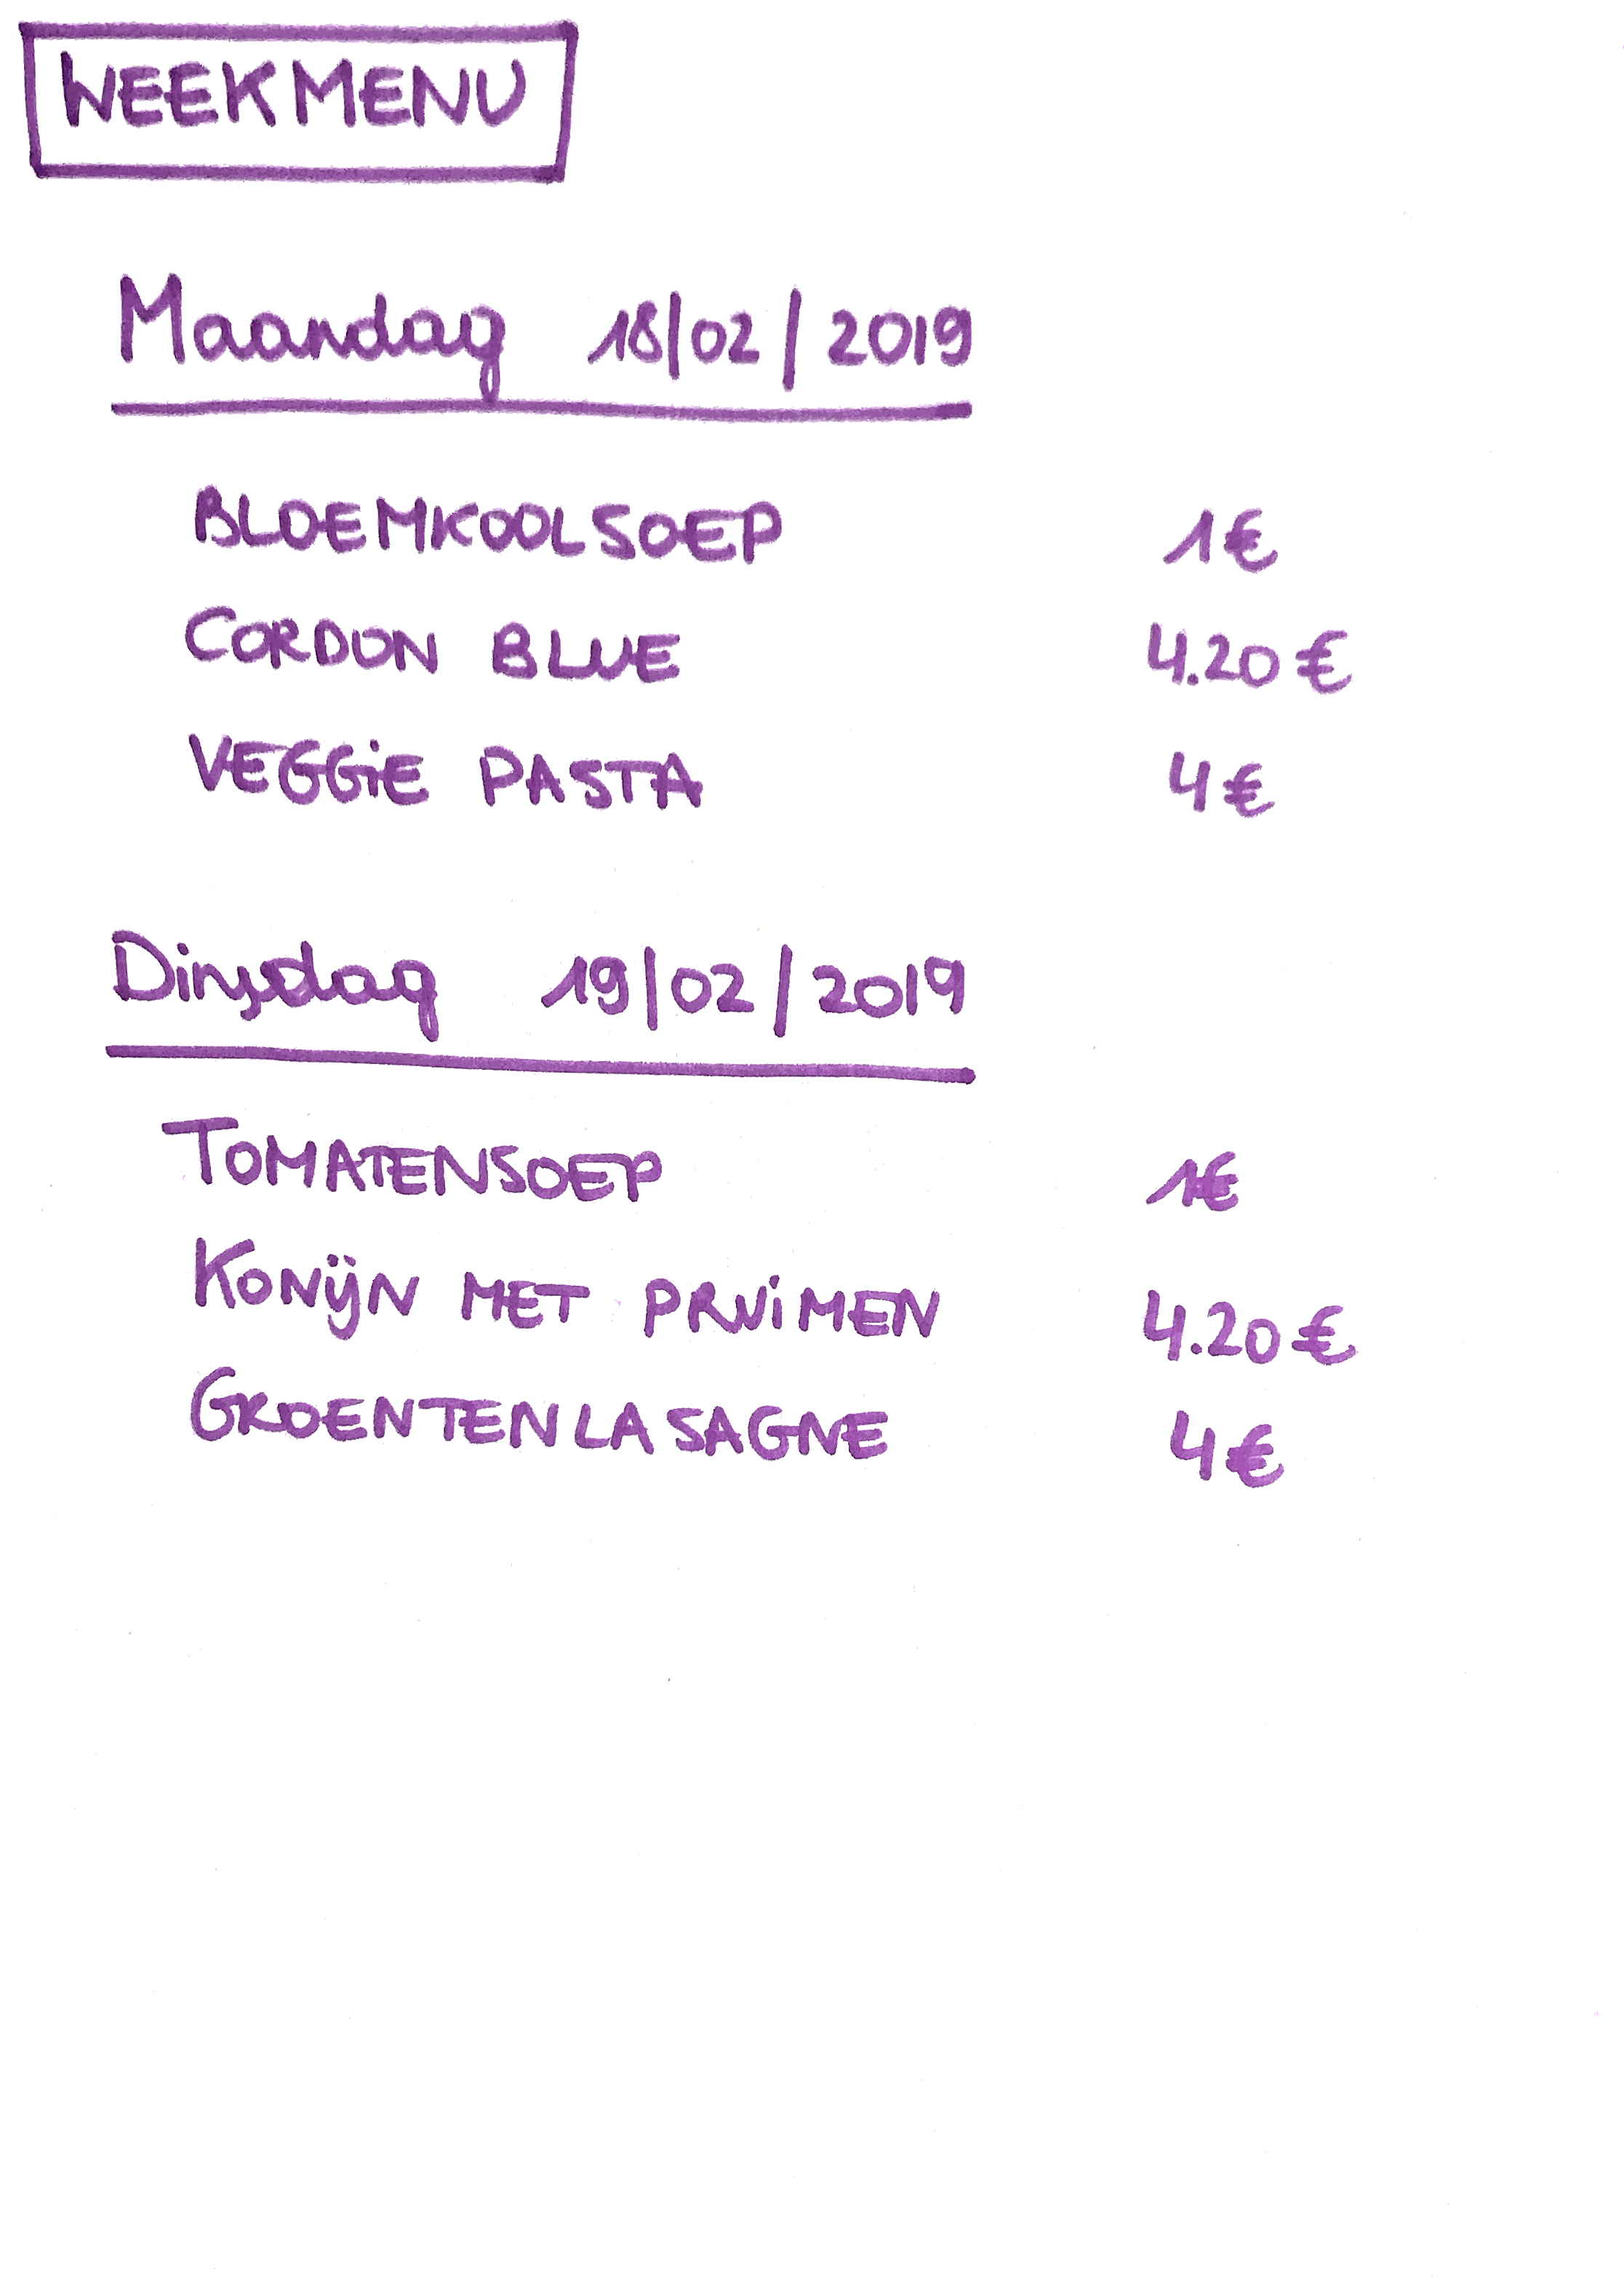 WEEKMENU
Maandag 18/02/2019
BLOEMKOOLSOEP 1€
CORDON BLUE 4.20€
VEGGiE PASTA 4€
Dinsdag 19/02/2019
TOMATENSOEP 1€
KONijN MET PRUiMEN 4.20€
GROENTENLASAGNE 4€